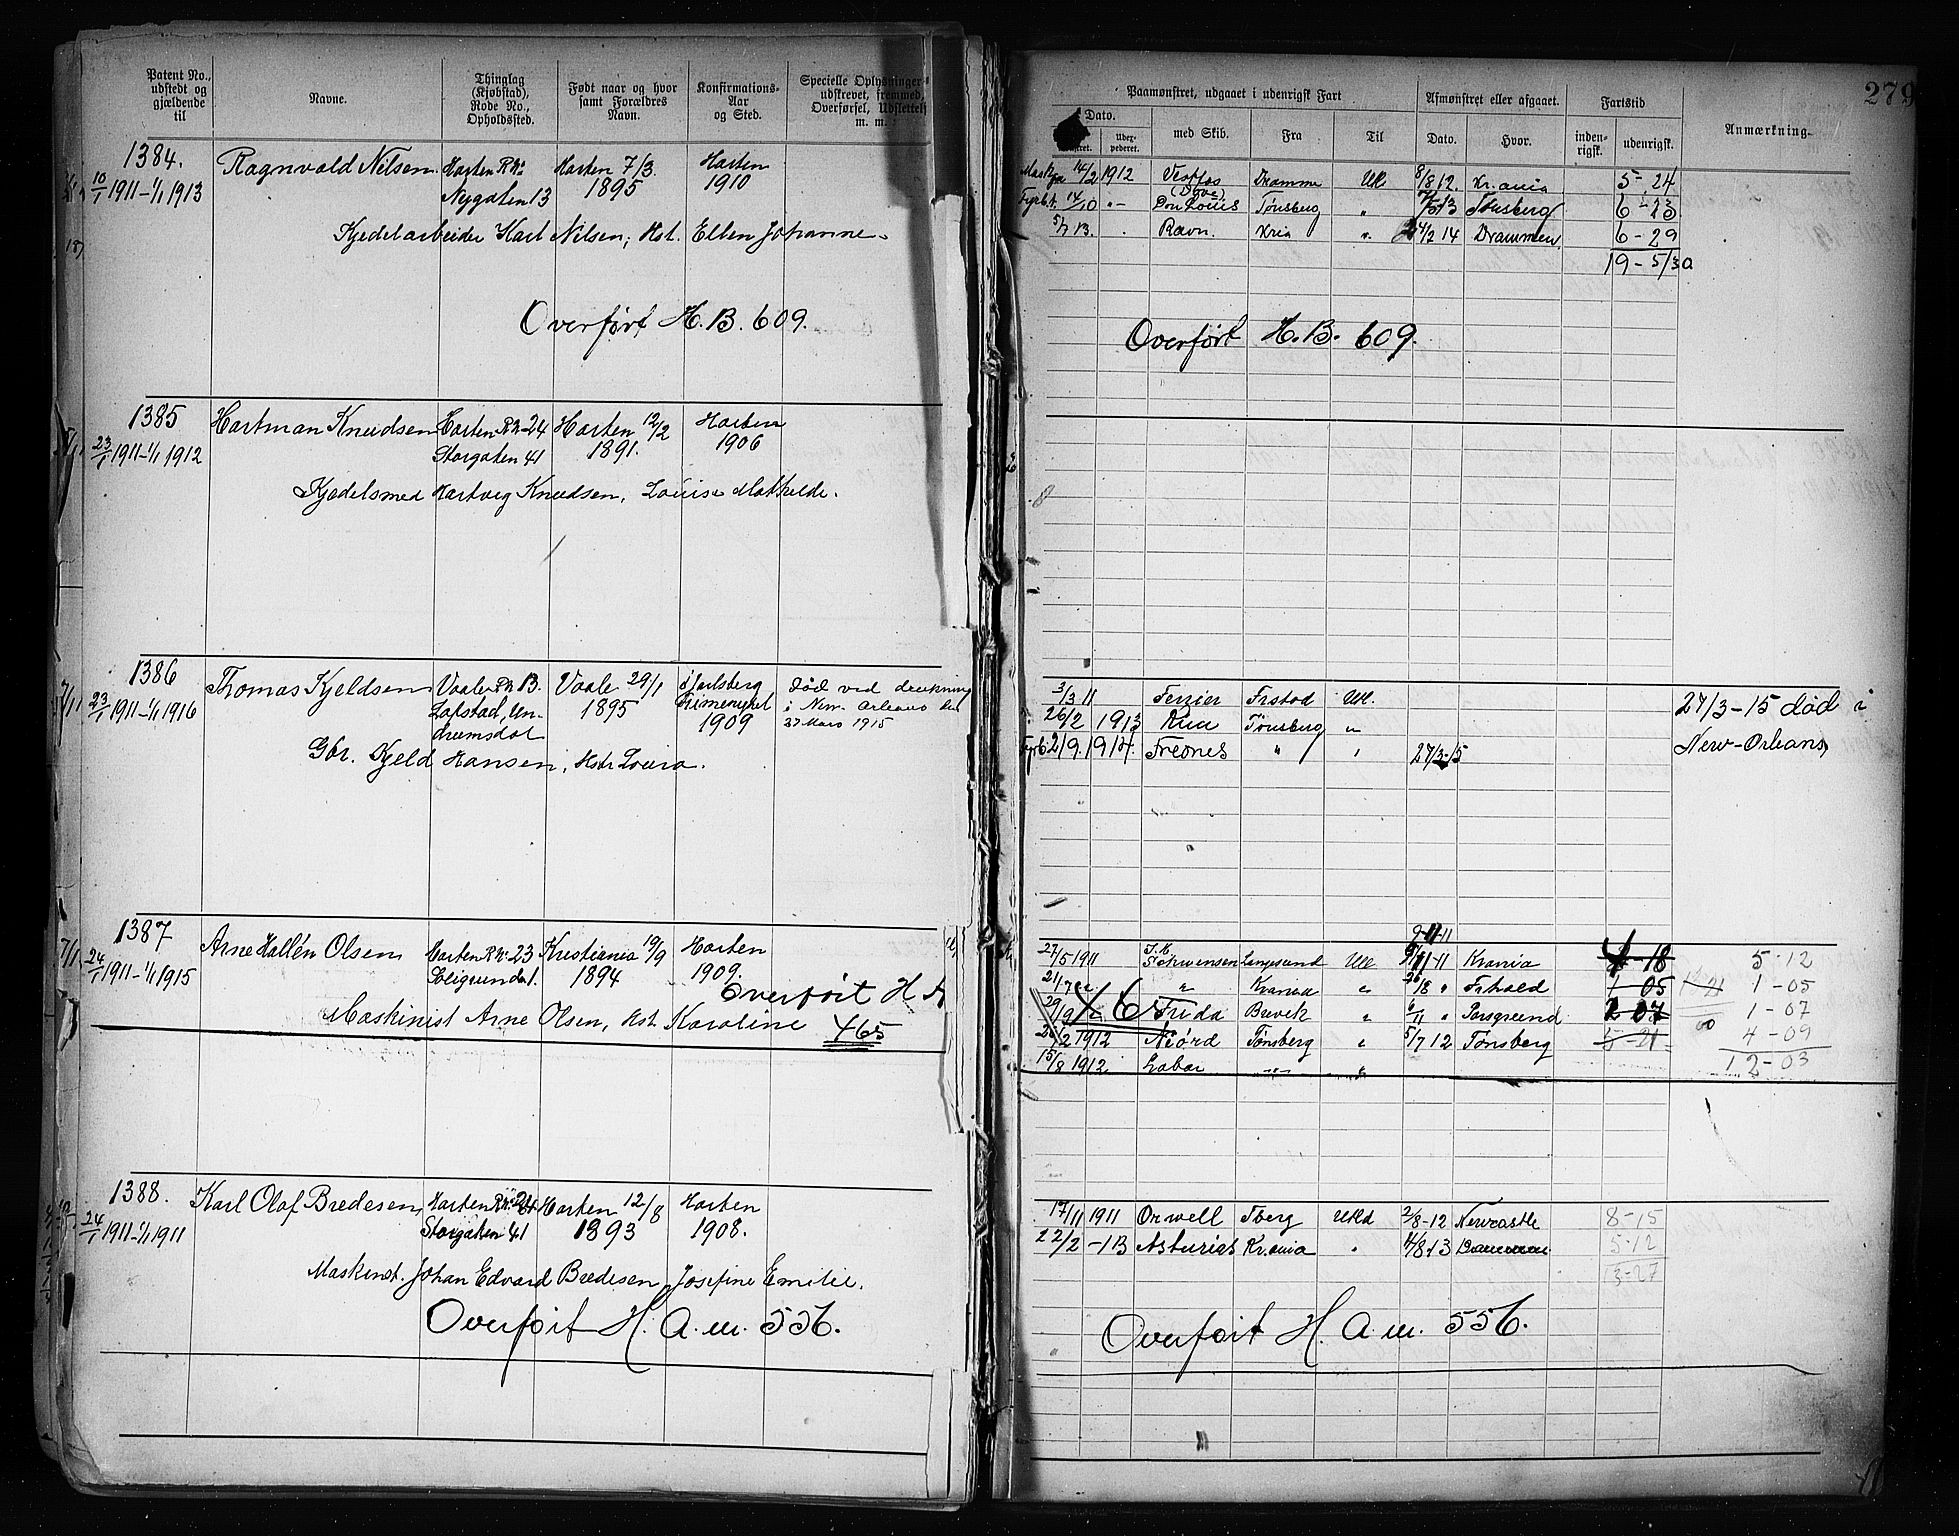 Patent No., udstedt og gjældende til
Navne.
Thinglag (Kjøbstad), Rode No., Opholdssted.
Født naar og hvor samt Forældres Navn.
Konfirmations- Aar og Sted.
Specielle Oplysninger, udskrevet, fremmed, Overførsel, Udslettels m. m.
1384.
10/1 1911-1/1 1913
Ragnvald Nilsen
Horten R.No
Nygaten 13
Horten 7/3
1895
Horten
1910
Kjedelarbeider Karl Nilsen, Hst. Ellen Johanne
Overført H.B. 609.
1385
23/1 1911-1/1 1912
Hartman Knudsen
Horten R.N-24
Storgaten 41
Horten 12/2
1891.
Horten
1906
Kjedelsmed Hartvig Knudsen, Louise Mathilde.
1386
23/1 1911-1/1 1916
Thomas Kjeldsen
Vaale R.N. 13.
Lofstad, Un-
drumsdal
Vaale 29/1
1895
Jarlsberg
Frimenighet
1909
død ved drukning
i New Orleans den
27 Mars 1915
Gbr. Kjeld Hansen, Hstr Lovisa.
1387
24/1 1911-1/1 1915
Arne Hallén Olsen
Horten R.No 23
Kristiania 19/9
1894
Horten
1909.
Overført H A
Maskinist Arne Olsen, Hst. Karoline
465
1388.
24/1 1911-1/1 1911
Karl Olaf Bredesen
Horten R.No 24
Storgaten 41
Horten 12/8
1893
Horten
1908.
Maskinst. Johan Edvard Bredesen, Josefine Emilie.
Overført H. A. m. 556.
279
Paamønstret, udgaaet i udenrigsk Fart
Afmønstret eller afgaaet.
Fartstid
Anmærkning.
Dato.
med Skib.
Fra
Til
Dato.
Hvor.
inden-rigsk.
udenrigsk.
14/2 1912 Vestfos Dramme Ul. 8/8 12. Kr.ania 5-24
(Dove)
Fyrb. 14/10 Don Louis Tønsberg " Tønsberg 6-23
5/7 13. Ravn. Kria " 14 Drammen 6-29
19-5/30
Overført H.B. 609.
3/3 11 Terrier Frstad Ul.
27/3-15 død i
26/2 1913 Tønsberg "
New-Orleans
Fyrb. 2/9. 1914. Frednes " 27/3-15
9-11-11
27/5 1911 Langesund Ul Krania 4-18 5-12
" Krania " Frhald 1 05 1-05
46
29/9 Frida Brevik " 6/11 " Porsgrund 2 07 1-07
2 1912 Njørd Tønsberg " 5/7 12 Tønsberg 5-21 4-09
15/8 1912 Labor " 12-03
17/11 1911 Orwell Tberg Utld 2/8-12 Newcastle 8-15
22/2 -13 Asturias Kr.ania " 4/8 13 Drammen 5-12
13-27
Overført H. A. m. 556.